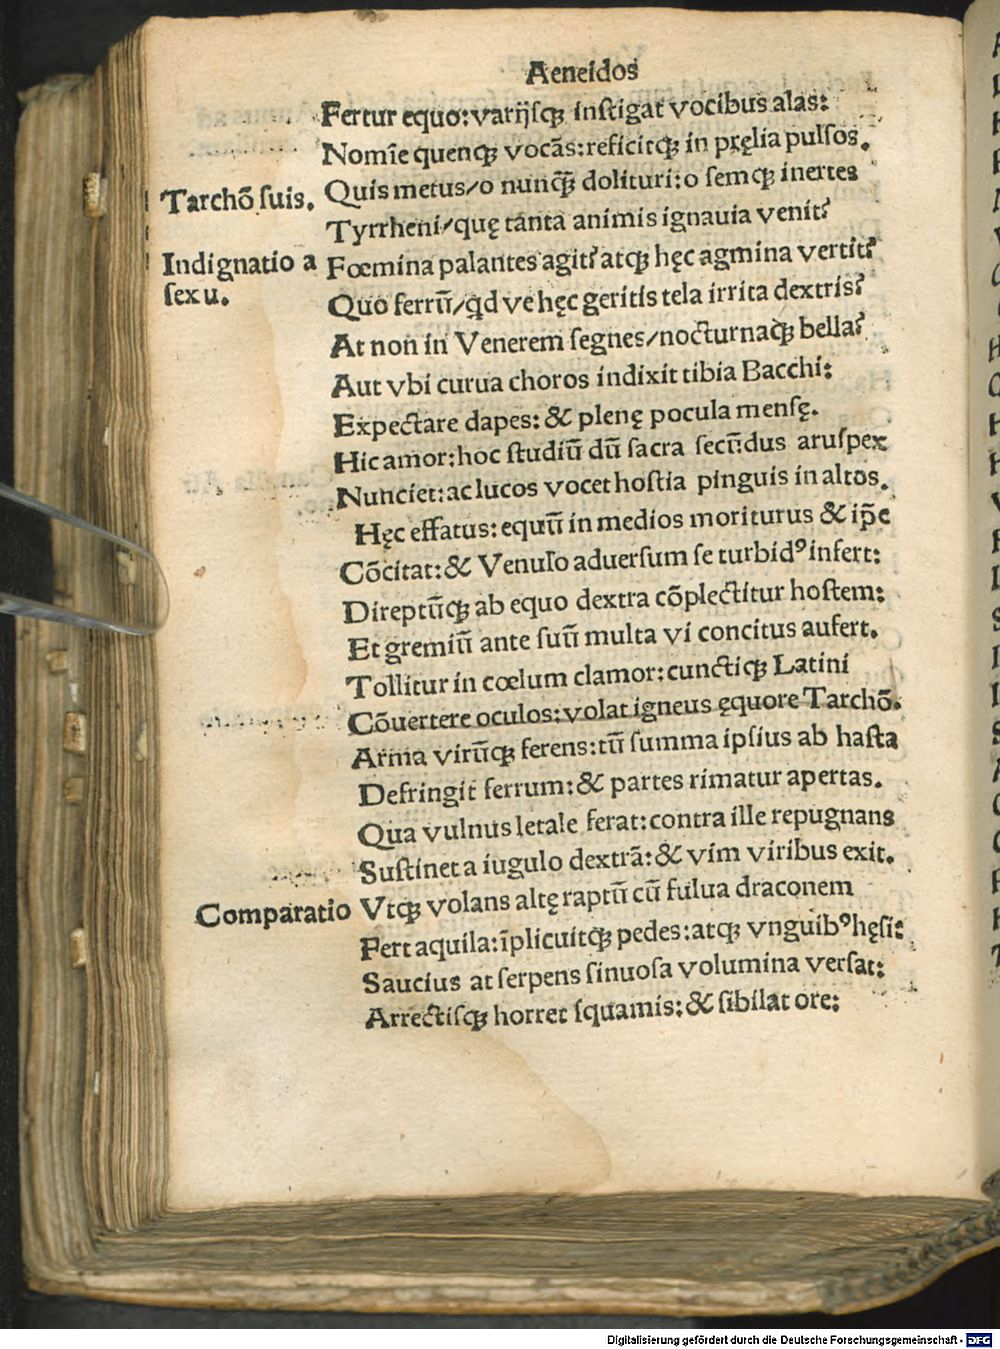 Aeneidos
Fertur equo: varijſqꝫ inſtigat vocibus alas:
Nomīe quenqꝫ vocãs: reficitqꝫ in pręlia pulſos.
Tarchõ ſuis.
Quis metus/o nunq̃ꝫ dolituri: o ſemꝑ inertes
Tyrrheni/quę tanta animis ignauia venit?
Indignatio a
ſexu.
Fœmina palantes agit? atqꝫ hęc agmina vertit?
Quo ferrũ/qd ve hęc geritis tela irrita dextris?
At non in Venerem ſegnes/nocturnaqꝫ bella?
Aut vbi curua choros indixit tibia Bacchi:
Expectare dapes: & plenę pocula menſę.
Hic amor: hoc ſtudiũ dũ ſacra ſecũdus aruſpex
Nunciet: ac lucos vocet hoſtia pinguis in altos.
Hęc effatus: equũ in medios moriturus & ip̃e
Cõcitat: & Venulo aduerſum ſe turbidꝰ infert:
Direptũqꝫ ab equo dextra cõplectitur hoſtem:
Et gremiũ ante ſuũ multa vi concitus aufert.
Tollitur in cœlum clamor: cunctiqꝫ Latini
Cõuertere oculos: volat igneus ęquore Tarchõ.
Arma virũqꝫ ferens: tũ ſumma ipſius ab haſta
Defringit ferrum: & partes rimatur apertas.
Qua vulnus letale ferat: contra ille repugnans
Suſtinet a iugulo dextrã: & vim viribus exit.
Comparatio
Vtqꝫ volans altę raptũ cũ fulua draconem
Fert aquila: īplicuitqꝫ pedes: atqꝫ vnguibꝰ hęſit:
Saucius at ſerpens ſinuoſa volumina verſat:
Arrectiſqꝫ horret ſquamis: & ſibilat ore:
Digitalisierung gefördert durch die Deutsche Forschungsgemeinschaft - DFG